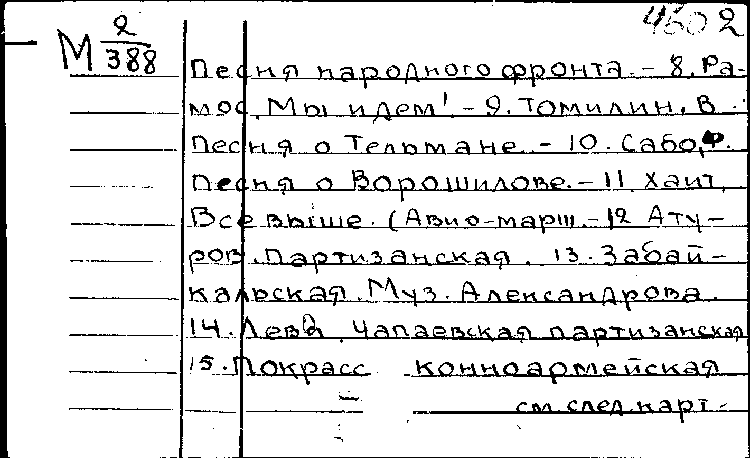 4502
М 2/388
Песня народного фронта. - 8. Ра-
мос. Мы идем! - 9. Томилин, В.
Песня о Тельмане. - 10. Сабо, Ф.
Песня о Ворошилове. - 11 Хайт,
Все выше. (Авио-марш. - 12 Ату-
ров. Партизанская. 13. Забай-
кальская. Муз. Александрова.
14. Лева. Чапаевская партизанская
15. Покрасс конноармейская
см. след. карт.